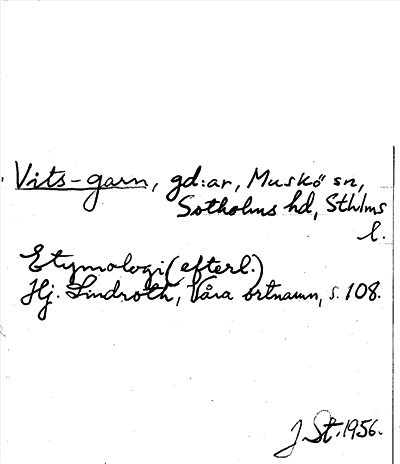 Vits-garn, gd:ar, Muskö sn,
Sotholms hd, Sthlms
l.
Etymologi (efterl.)
Hj. Lindroth, Våra ortnamn, s. 108.
J St. 1956.